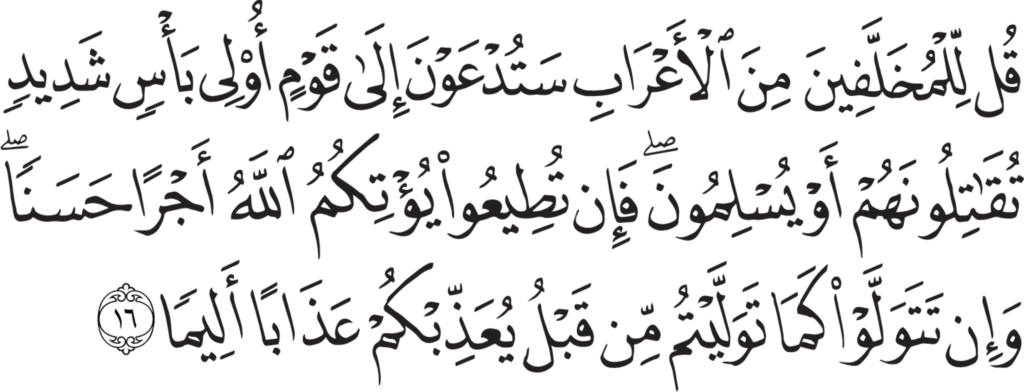 قُل لِّلْمُخَلَّفِينَ مِنَ ٱلْأَعْرَابِ سَتُدْعَوْنَ إِلَىٰ قَوْمٍ أُو۟لِى بَأْسٍ شَدِيدٍ
تُقَـٰتِلُونَهُمْ أَوْ يُسْلِمُونَ ۖ فَإِن تُطِيعُوا۟ يُؤْتِكُمُ ٱللَّهُ أَجْرًا حَسَنًا ۖ
وَإِن تَتَوَلَّوْا۟ كَمَا تَوَلَّيْتُم مِّن قَبْلُ يُعَذِّبْكُمْ عَذَابًا أَلِيمًا ١٦